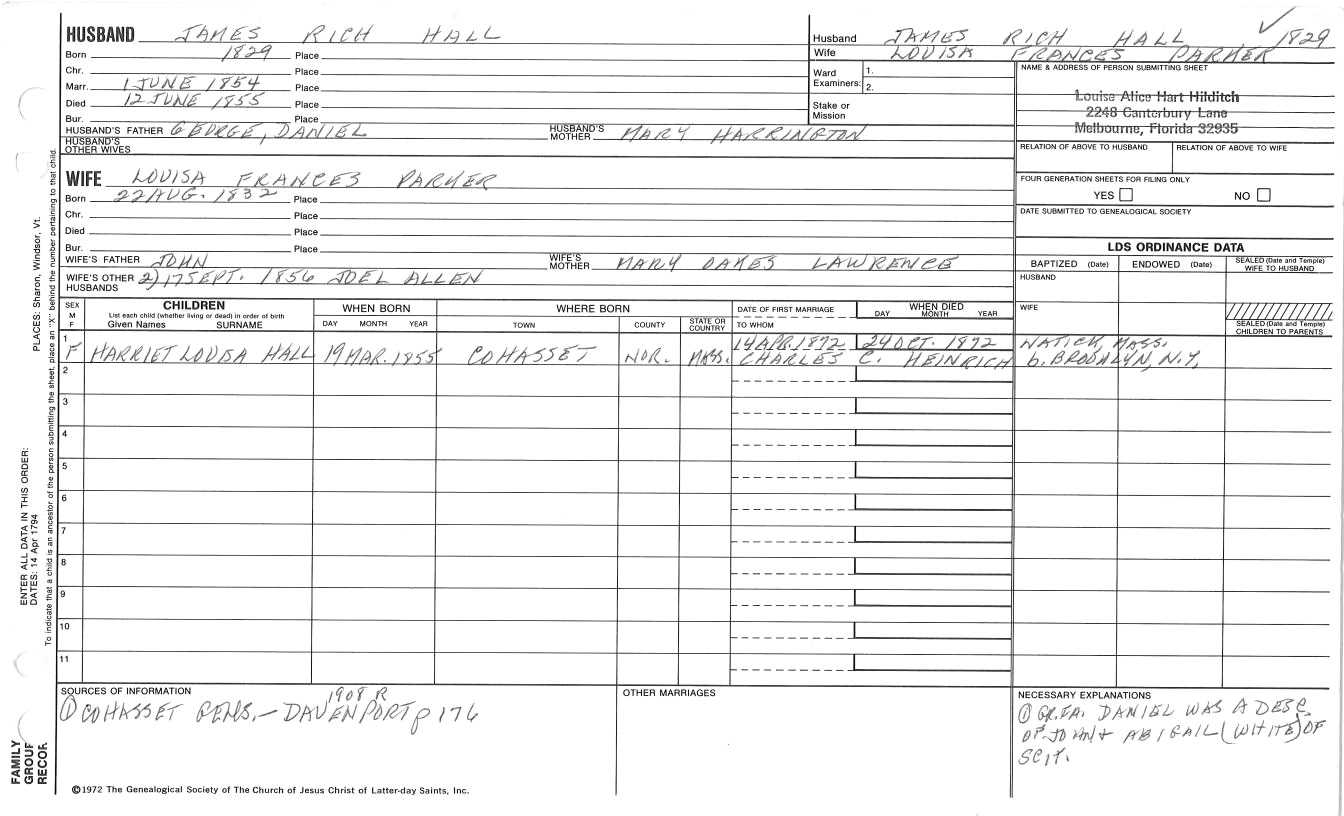 HUSBAND JAMES RICH HALL
Born 1829 Place
Chr. Place
Marr. 1 JUNE 1854 Place
Died 12 JUNE 1855 Place
Bur. Place
HUSBAND'S FATHER GEORGE, DANIEL HUSBAND'S MOTHER MARY HARRINGTON
HUSBAND'S OTHER WIVES
Husband JAMES RICH HALL 1829
Wife LOUISA FRANCES PARKER
Ward Examiners: 1.
2.
Stake or Mission
NAME & ADDRESS OF PERSON SUBMITTING SHEET
Louise Alice Hart Hilditch
2248 Canterbury Lane
Melbourne, Florida 32935
RELATION OF ABOVE TO HUSBAND RELATION OF ABOVE TO WIFE
FOUR GENERATION SHEETS FOR FILING ONLY
YES NO
DATE SUBMITTED TO GENEALOGICAL SOCIETY
WIFE LOUISA FRANCES PARKER
Born 22 AUG. 1832 Place
Chr. Place
Died Place
Bur. Place
WIFE'S FATHER JOHN WIFE'S MOTHER MARY OAKES LAWRENCE
WIFE'S OTHER HUSBANDS 2) 17 SEPT. 1856 JOEL ALLEN
LDS ORDINANCE DATA
BAPTIZED (Date) ENDOWED (Date) SEALED (Date and Temple) WIFE TO HUSBAND
HUSBAND
WIFE
SEALED (Date and Temple) CHILDREN TO PARENTS
SEX M F
CHILDREN
List each child (whether living or dead) in order of birth
Given Names SURNAME
WHEN BORN
DAY MONTH YEAR
WHERE BORN
TOWN COUNTY STATE OR COUNTRY
DATE OF FIRST MARRIAGE
TO WHOM
WHEN DIED
DAY MONTH YEAR
1 F HARRIET LOUISA HALL 19 MAR. 1855 COHASSET NOR. MASS. 14 APR. 1872 24 OCT. 1872 NATICK, MASS.
CHARLES C. HEINRICH b. BROOKLYN, N.Y.
2
3
4
5
6
7
8
9
10
11
SOURCES OF INFORMATION
1908 R
① COHASSET GENS. - DAVENPORT p 176
OTHER MARRIAGES
NECESSARY EXPLANATIONS
① GR. FA. DANIEL WAS A DESC.
OF JOHN + ABIGAIL (WHITE) OF
SCIT.
©1972 The Genealogical Society of The Church of Jesus Christ of Latter-day Saints, Inc.
ENTER ALL DATA IN THIS ORDER:
DATES: 14 Apr 1794 PLACES: Sharon, Windsor, Vt.
To indicate that a child is an ancestor of the person submitting the sheet, place an "X" behind the number pertaining to that child.
FAMILY
GROUP
RECOR